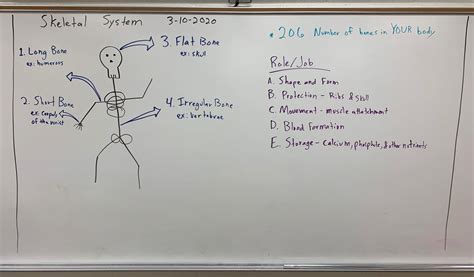 Skeletal System 3-10-2020
* 206 Number of bones in YOUR body
1. Long Bone
ex: humerous
3. Flat Bone
ex: skull
2. Short Bone
ex: Carpuls
of the wrist
4. Irregular Bone
ex: vertabrae
Role/Job
A. Shape and Form
B. Protection - Ribs & Skull
C. Movement - muscle attatchment
D. Blood Formation
E. Storage - calcium, phosphate, & other nutrients